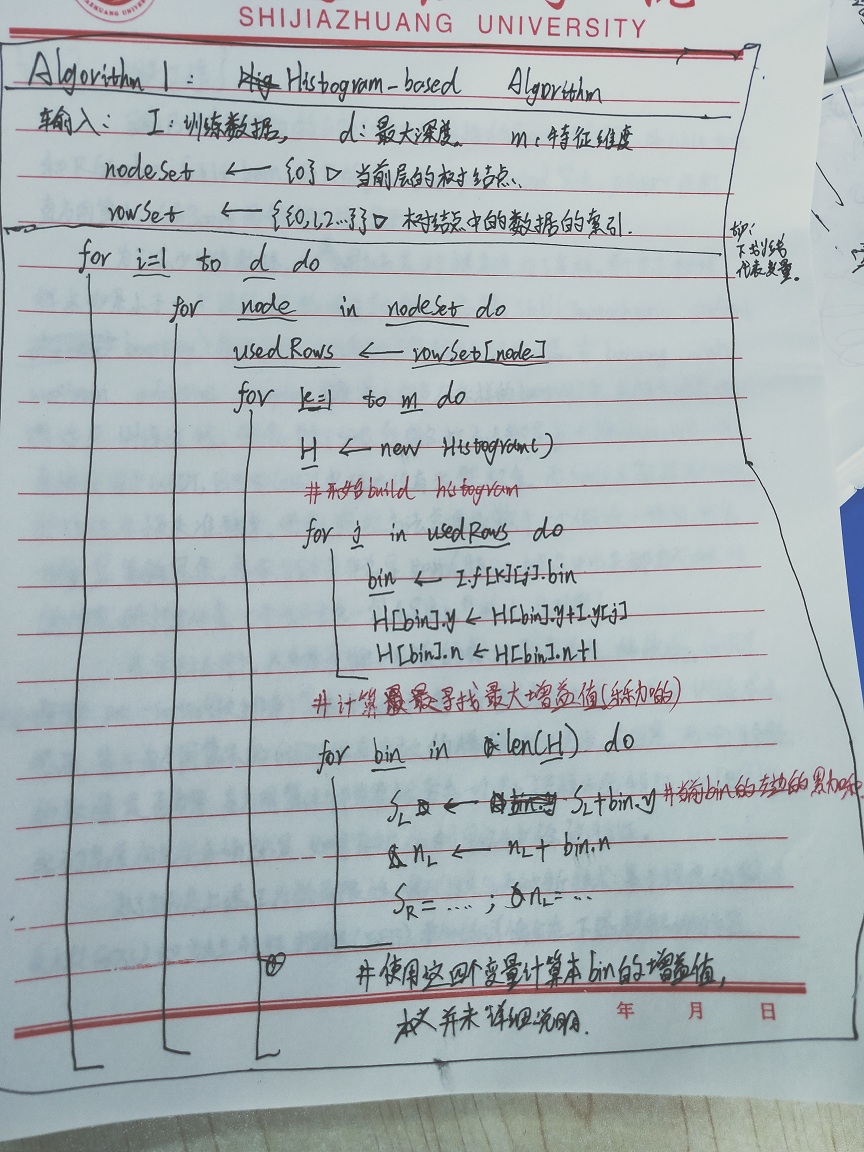 SHIJIAZHUANG UNIVERSITY
Algorithm 1: Histogram-based Algorithm
输入: I:训练数据, d:最大深度. m:特征维度
nodeSet ← {0} ▷ 当前层的树结点.
rowSet ← {{0,1,2...}} ▷ 树结点中的数据的索引.
下划线
代表变量。
for i=1 to d do
for node in nodeSet do
usedRows ← rowSet[node]
for k=1 to m do
H ← new Histogram()
#开始build histogram
for j in usedRows do
bin ← I.f[k][j].bin
H[bin].y ← H[bin].y+I.y[j]
H[bin].n ← H[bin].n+1
#计算最最寻找最大增益值(乐乐加的)
for bin in len(H) do
SL ← SL+bin.y #当前bin的左边的累加和
nL ← nL+bin.n
SR=....; nL=...
#使用这四个变量计算本bin的增益值,
本文并未详细说明.
年 月 日